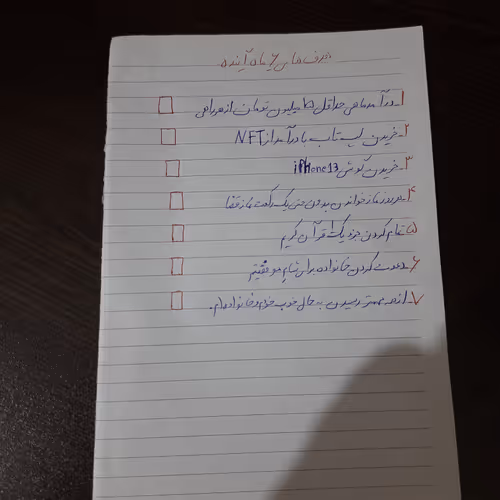 هدف های ۶ ماه آینده
۱ـ درآمد ماهی حداقل ۱۵ میلیون تومان از هر راهی
۲ـ خریدن لپ تاپ با درآمد از NFT
۳ـ خریدن گوشی iPhone 13
۴ـ هر روز نماز خواندن بدون حتی یک رکعت نماز قضا
۵ـ تمام کردن جزء یک قرآن کریم
۶ـ دعوت کردن خانواده برای شام موفقیتم
۷ـ از همه مهمتر رسیدن به حال خوب خودم و خانواده ام.